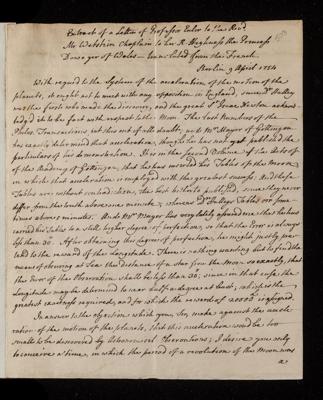 Extract of a Letter of Professor Euler to the Revd
Mr Wetstein Chaplain to her R. Highness the Princess
Dowager of Wales — translated from the French
Berlin 9 April 1754
With regard to the System of the acceleration of the motion of the
planets, it ought not to meet with any opposition in England, since Dr Halley
was the first who made the discovery, and the great Sr Isaac Newton acknow
ledg'd it to be fact with respect to the Moon. The last Numbers of the
Philos. Transactions put this out of all doubt, and Mr Mayer of Gottingen
has exactly determined that acceleration, tho' he has not yet published the
particulars of his demonstration. It is in the second Volume of the Acts of
the Academy of Gottingen, that he has inserted his Tables of the Moon,
in which that acceleration is employed with the greatest success. And these
Tables are without contradiction, the best hitherto published, since they never
differ from the truth above one minute; whereas Dr Halley's Tables err some
times above 5 minutes. And Mr Mayer has very lately assured me that he has
carried his Tables to a still higher degree of perfection, so that the Error is always
less than 30. After obtaining this degree of perfection, he might justly pre
tend to the reward of the Longitude. There is nothing wanting but to find the
means of observing at Sea the distance of a star from the Moon so exactly, that
the Error of the Observation shall be less than 30; since in that case the
Longitude may be determined to near half a degree at least, which is the
greatest exactness required, and for which the reward of 20000 is assigned.
In answer to the objection which you, Sir, make against the accele
ration of the motion of the planets, that this acceleration would be too
small to be discovered by Astronomical Observations; I desire you only
to conceive a time, in which the period of a revolution of the Moon was
a